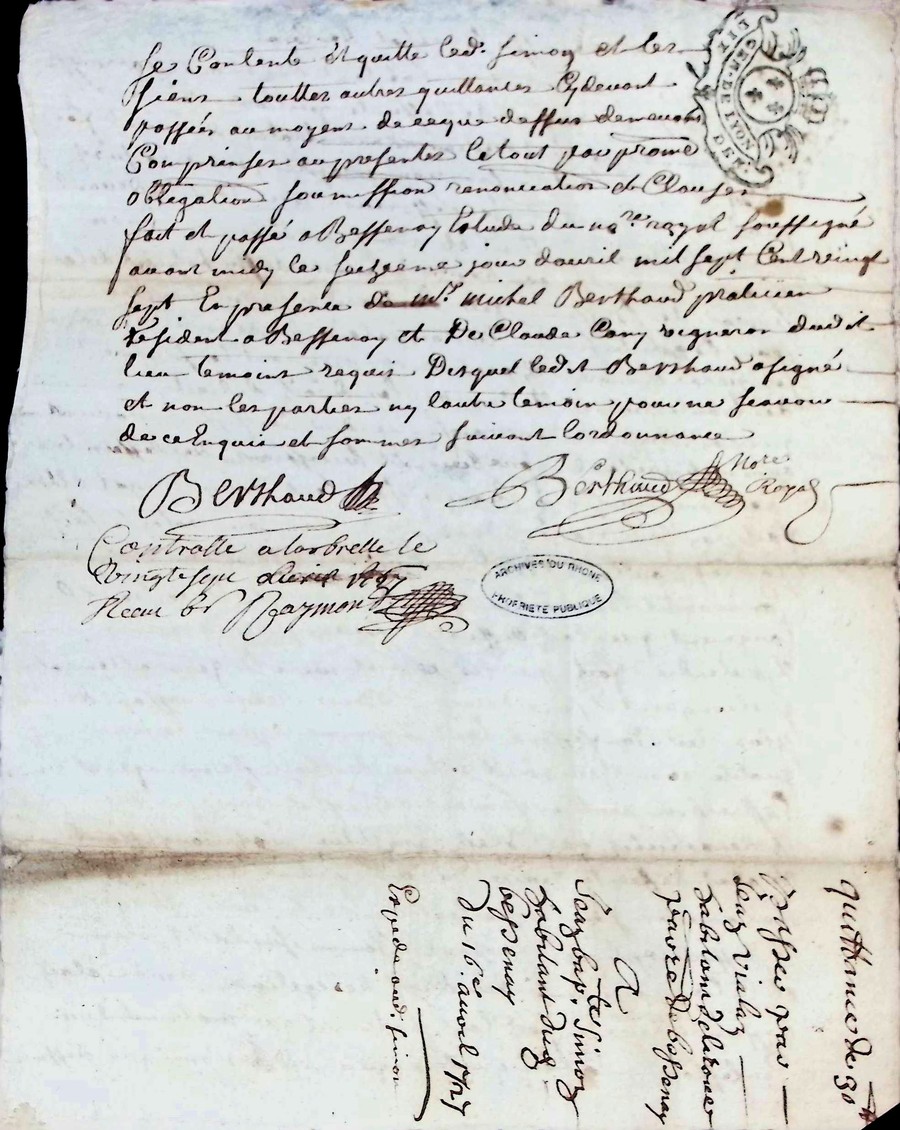 se Contente et quitte led. Simon et les
siens touttes autres quittances Cydevant
passées au moyens de ceque dessus demeurant
Comprinses au presentes le tout par promé
obligation soumission renonciation et Clauses
fait et passé a Bessenay Estude du no.re royal soussigné
avant midy le seizeme jour davril mil sept Cent vingt
sept En presence de m.r michel Berthaud praticien
résident a Bessenay et De Claude Cony vigneron dudit
lieu temoins requis Desquel ledit Berthaud a signé
et non les parties ny lautre temoin pour ne scavoir
de ce Enquis et sommes suivant lordonnance
Berthaud
Berthaud Not.re
Royal
Controlle a larbrelle le
Vingtesept avril 1727
Receu 6s Raymond
GEN. DE LYON
ARCHIVES DU RHONE
PROPRIETE PUBLIQUE
quittance de 30 tt
passée par
Jean Vialaz
habitant de
de bessenay
A
Jean bap. Simon
habitant dud.
bessenay
du 16e avril 1727
Expedié aud. Simon